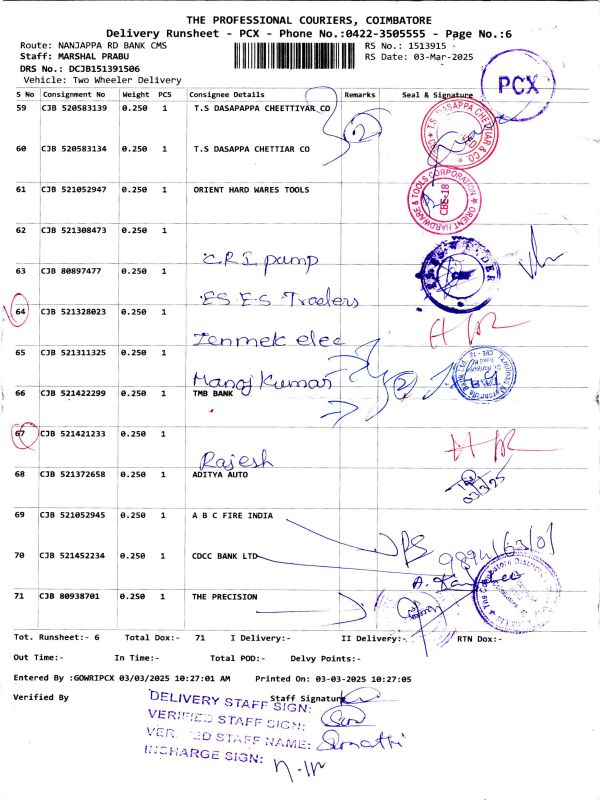 THE PROFESSIONAL COURIERS, COIMBATORE
Delivery Runsheet - PCX - Phone No.:0422-3505555 - Page No.:6
Route: NANJAPPA RD BANK CMS RS No.: 1513915
Staff: MARSHAL PRABU RS Date: 03-Mar-2025
DRS No.: DCJB151391506
Vehicle: Two Wheeler Delivery
PCX
S No Consignment No Weight PCS Consignee Details Remarks Seal & Signature
59 CJB 520583139 0.250 1 T.S DASAPAPPA CHEETTIYAR CO
T.S. DASAPPA CHETTIAR & CO
60 CJB 520583134 0.250 1 T.S DASAPPA CHETTIAR CO
61 CJB 521052947 0.250 1 ORIENT HARD WARES TOOLS
ORIENT HARDWARE & TOOLS CORPORATION CBE-18
62 CJB 521308473 0.250 1
C.R.I pump
63 CJB 80897477 0.250 1
E.S.E.S Traders
64 CJB 521328023 0.250 1
Zenmek elec
65 CJB 521311325 0.250 1
Manoj Kumar
66 CJB 521422299 0.250 1 TMB BANK
67 CJB 521421233 0.250 1
Rajesh
68 CJB 521372658 0.250 1 ADITYA AUTO
03/3/25
69 CJB 521052945 0.250 1 A B C FIRE INDIA
70 CJB 521452234 0.250 1 CDCC BANK LTD
71 CJB 80938701 0.250 1 THE PRECISION
Tot. Runsheet:- 6 Total Dox:- 71 I Delivery:- II Delivery:- RTN Dox:-
Out Time:- In Time:- Total POD:- Delvy Points:-
Entered By :GOWRIPCX 03/03/2025 10:27:01 AM Printed On: 03-03-2025 10:27:05
Verified By Staff Signature
DELIVERY STAFF SIGN:
VERIFIED STAFF SIGN:
VERIFIED STAFF NAME: Sumathi
INCHARGE SIGN: